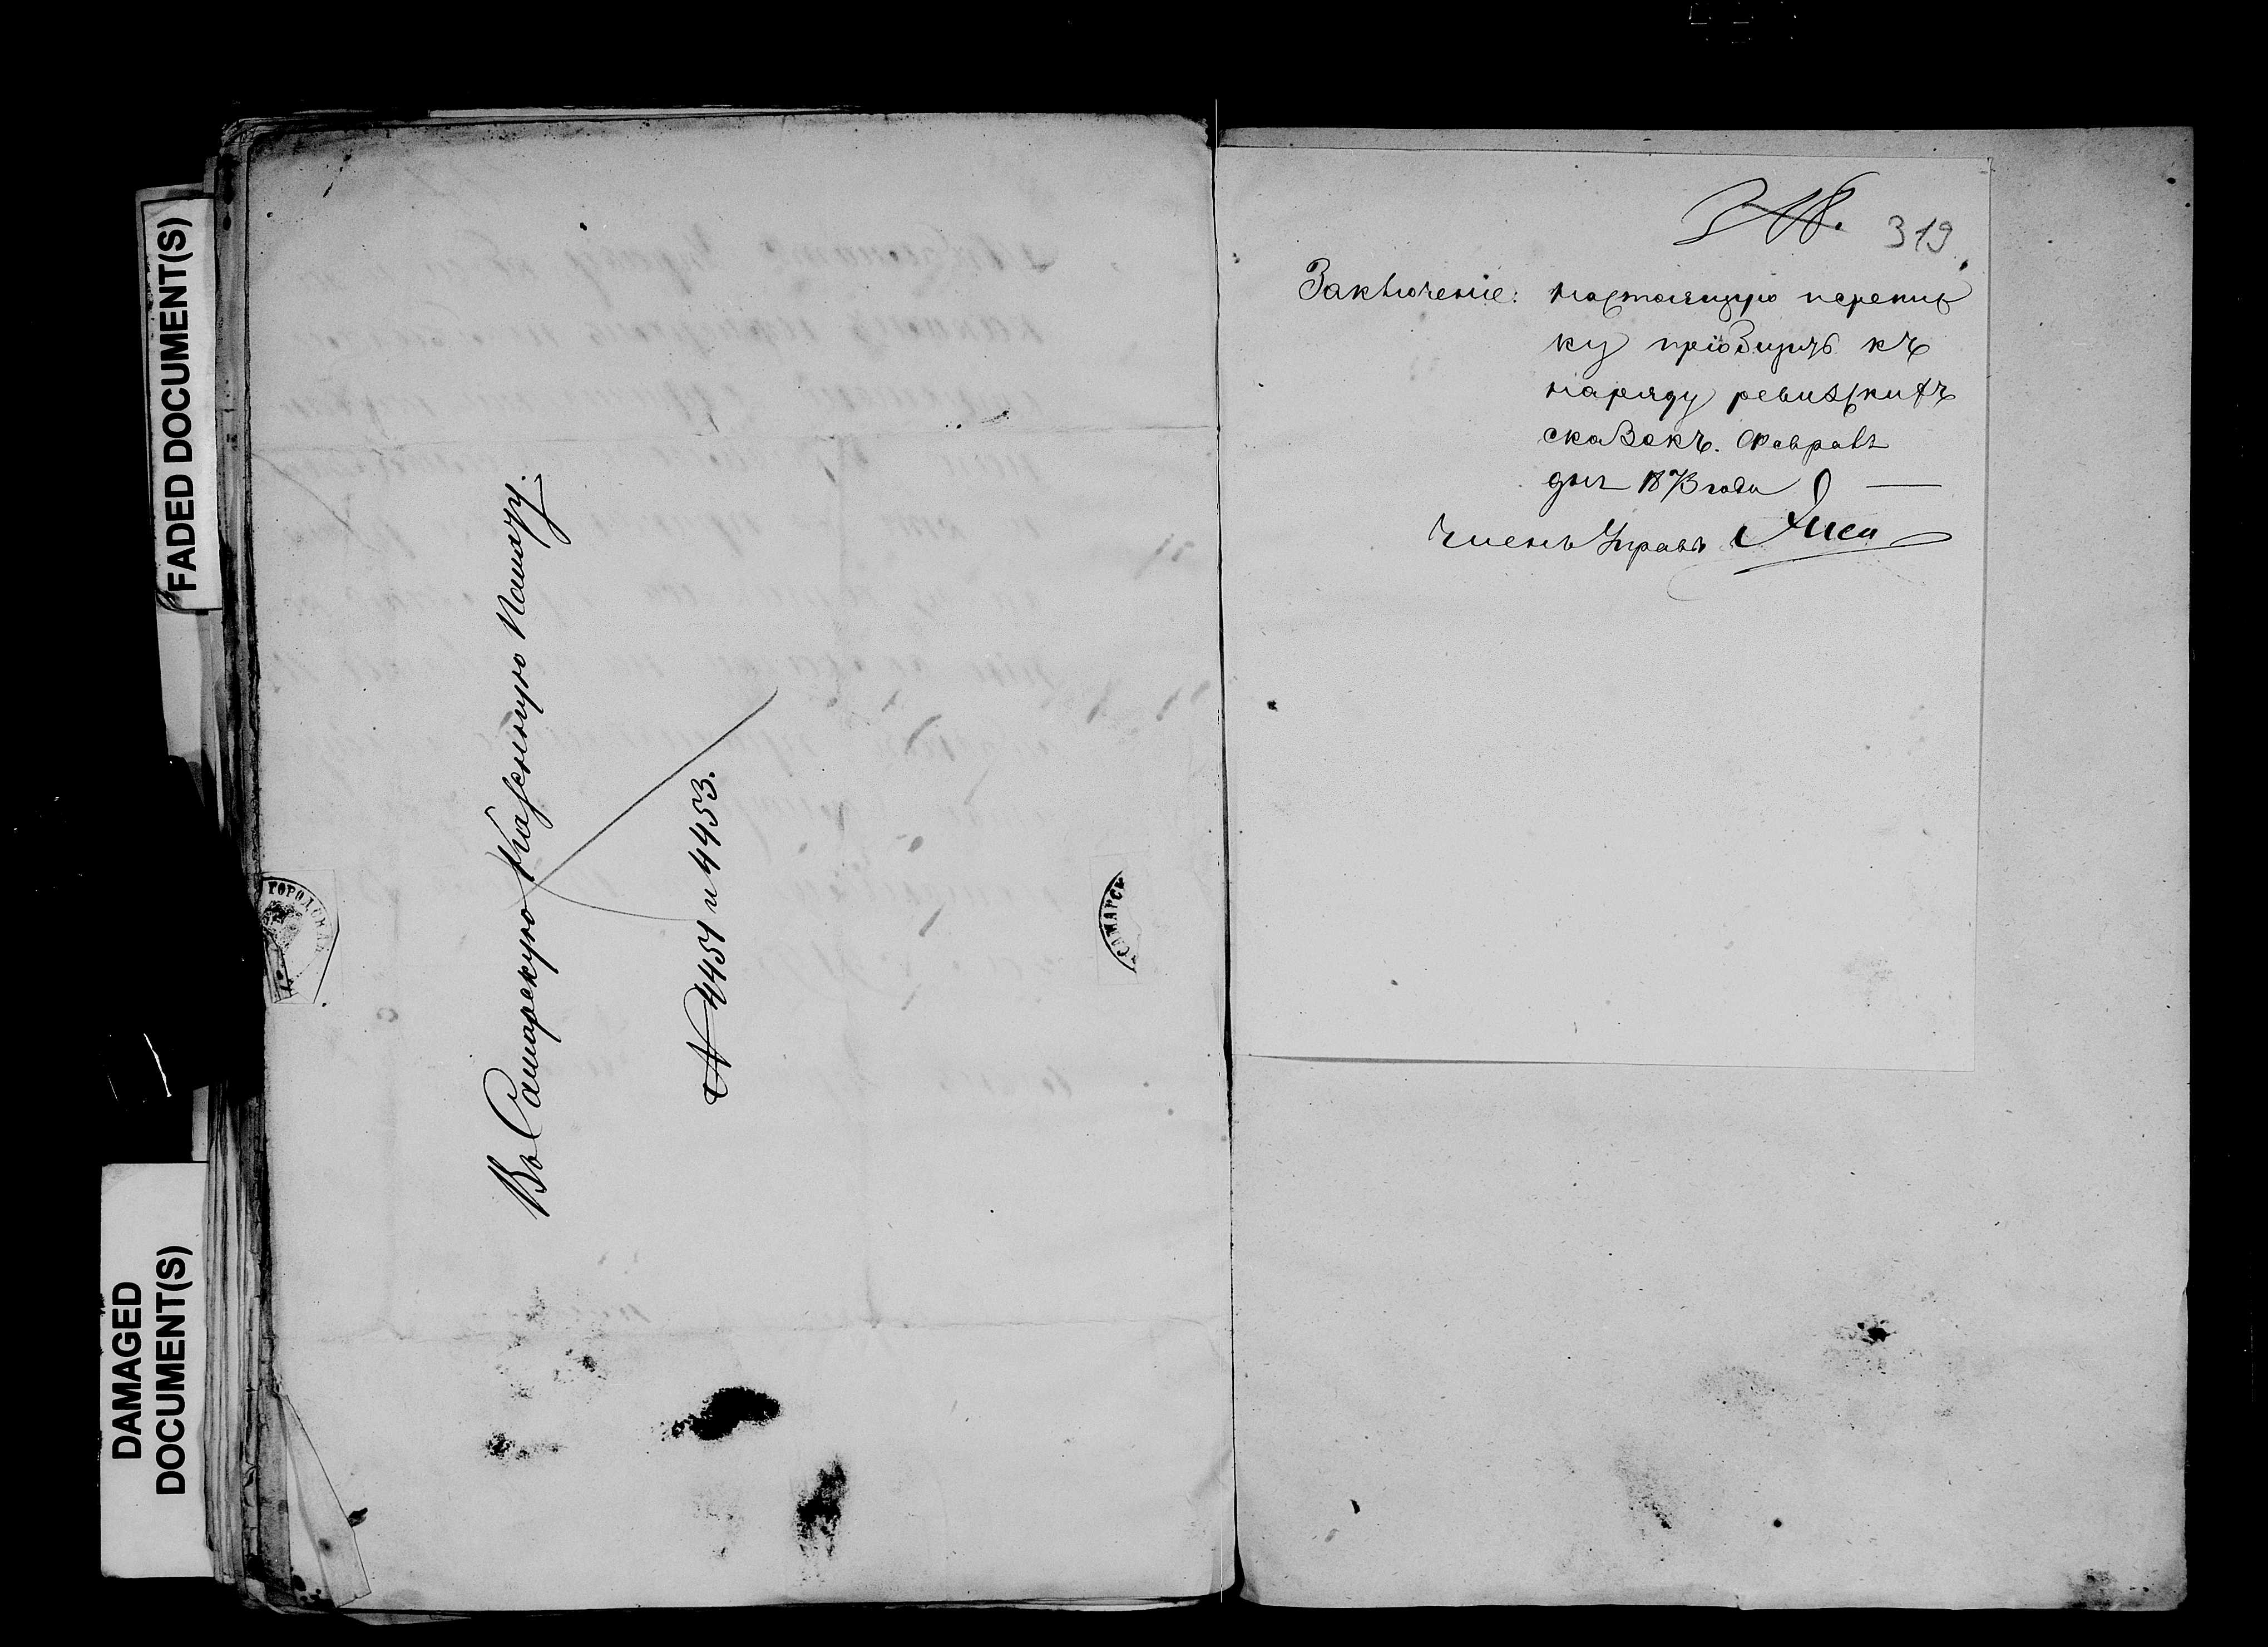 FADED DOCUMENT(S)
DAMAGED
DOCUMENT(S)
Въ Самарскую Казенную Палату.
№ 4451 и 4453.
ГОРОДСКАЯ
САМАРСК
318.
319
Заключеніе: настоящую перепис
ку пріобщить къ
наряду ревизскихъ
сказокъ. Февраля
дня 1873 года
Членъ Управы